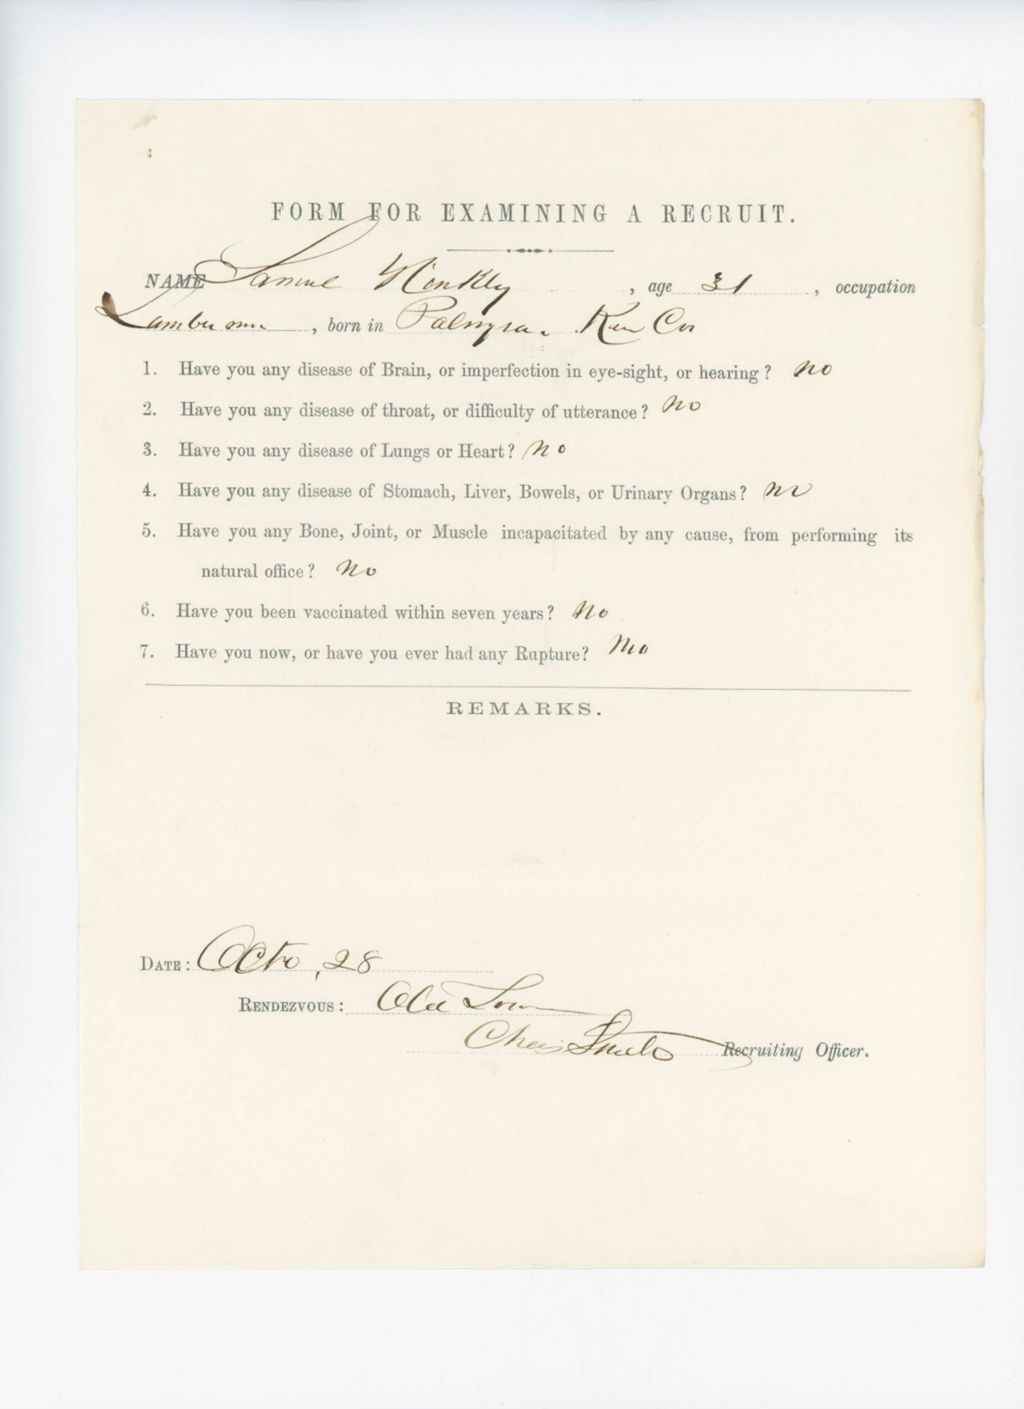 FORM FOR EXAMINING A RECRUIT.
NAME Samuel Hinkley, age 31, occupation
Lamberman, born in Palmyra. Ken Co
1. Have you any disease of Brain, or imperfection in eye-sight, or hearing? No
2. Have you any disease of throat, or difficulty of utterance? No
3. Have you any disease of Lungs or Heart? No
4. Have you any disease of Stomach, Liver, Bowels, or Urinary Organs? No
5. Have you any Bone, Joint, or Muscle incapacitated by any cause, from performing its
natural office? No
6. Have you been vaccinated within seven years? No
7. Have you now, or have you ever had any Rupture? No
REMARKS.
DATE: Octo, 28
RENDEZVOUS: Old Town
Chas Recruiting Officer.